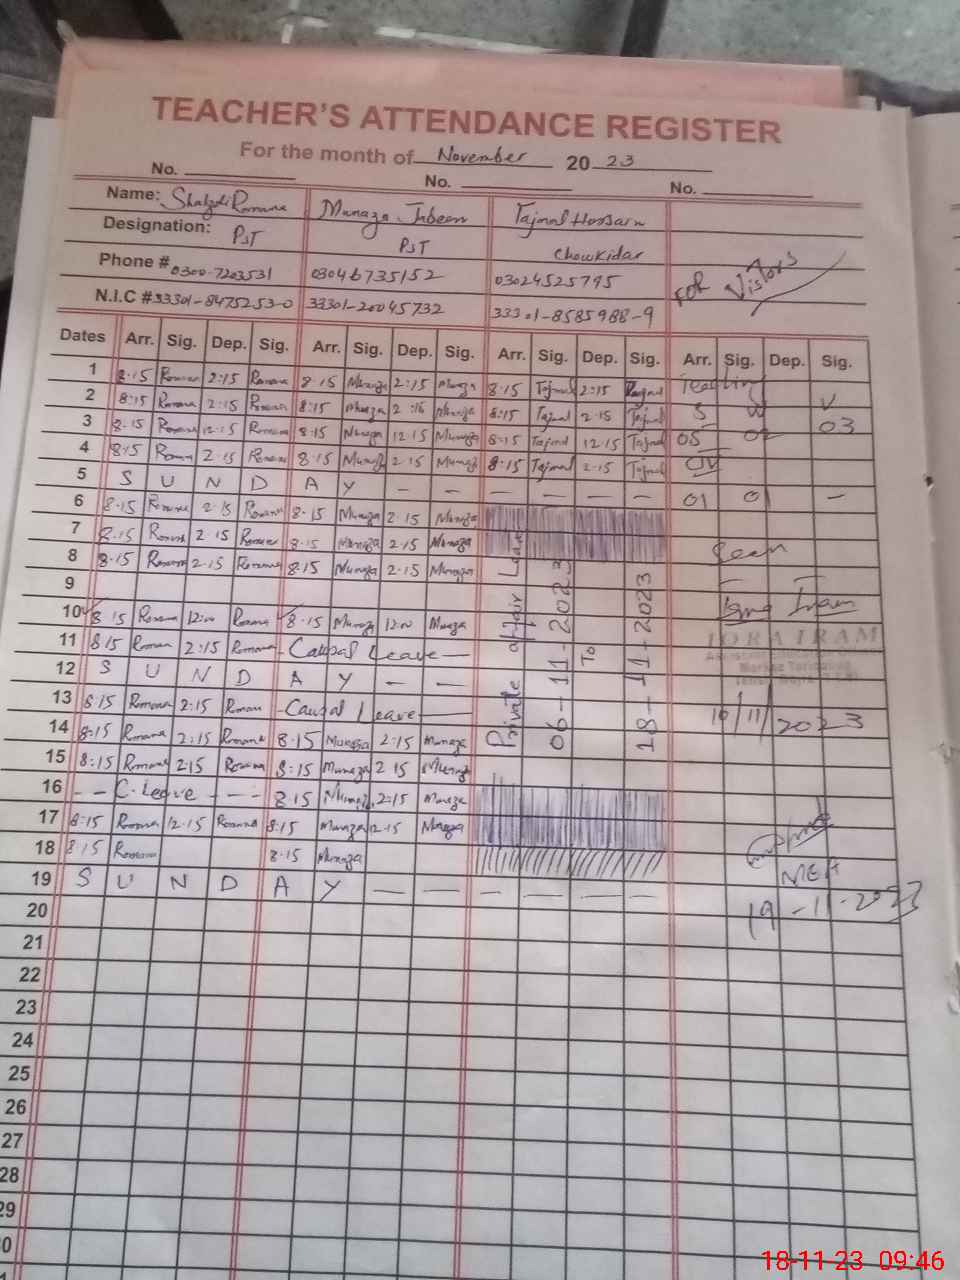 TEACHER'S ATTENDANCE REGISTER
For the month of November 2023
No. No. No.
Name: Shahzadi Romana Munaza Jabeen Tajmal Hussain
Designation: PST PST Chowkidar
Phone # 0300-7203531 03046735152 03024525795
FOR Vistors
N.I.C # 33301-8475253-0 33301-20045732 33301-8585988-9
Dates Arr. Sig. Dep. Sig. Arr. Sig. Dep. Sig. Arr. Sig. Dep. Sig. Arr. Sig. Dep. Sig.
1 8:15 Romana 2:15 Romana 8:15 Munaza 2:15 Munaza 8:15 Tajmal 2:15 Tajmal Teaching
2 8:15 Romana 2:15 Romana 8:15 Munaza 2:15 Munaza 8:15 Tajmal 2:15 Tajmal S W V
3 8:15 Romana 12:15 Romana 8:15 Munaza 12:15 Munaza 8:15 Tajmal 12:15 Tajmal 05 02 03
4 8:15 Romana 2:15 Romana 8:15 Munaza 2:15 Munaza 8:15 Tajmal 2:15 Tajmal
5 S U N D A Y — — — — — — 01 0 —
6 8:15 Romana 2:15 Romana 8:15 Munaza 2:15 Munaza
7 8:15 Romana 2:15 Romana 8:15 Munaza 2:15 Munaza Seen
8 8:15 Romana 2:15 Romana 8:15 Munaza 2:15 Munaza
9
10 8:15 Romana 12:00 Romana 8:15 Munaza 12:00 Munaza
IQRA IRAM
11 8:15 Romana 2:15 Romana - Causal Leave —
Assistant Education Officer
12 S U N D A Y — —
13 8:15 Romana 2:15 Romana - Causal Leave —
10/11/2023
14 8:15 Romana 2:15 Romana 8:15 Munaza 2:15 Munaza
Private affair Leave
06-11-2023
To
18-11-2023
15 8:15 Romana 2:15 Romana 8:15 Munaza 2:15 Munaza
16 - - C. Leave - - - 8:15 Munaza 2:15 Munaza
17 8:15 Romana 12:15 Romana 8:15 Munaza 12:15 Munaza
18 8:15 Romana 8:15 Munaza
MEA
19 S U N D A Y — — — — — —
19-11-2023
20
21
22
23
24
25
26
27
28
29
30
18-11-23 09:46